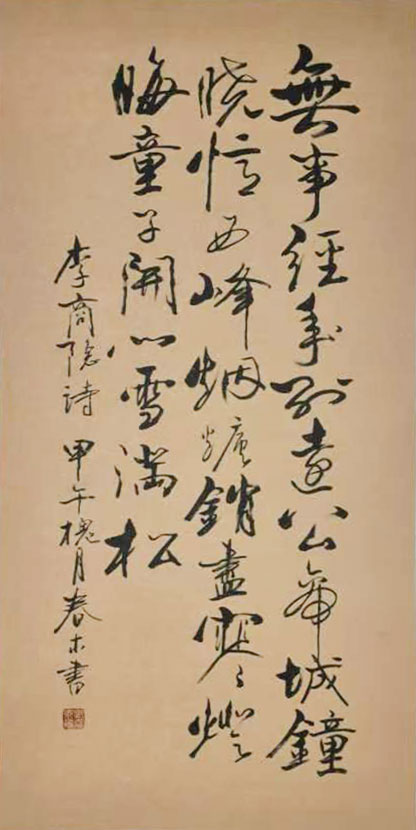 無事經年別遠公帝城鐘
曉憶西峰烟爐銷盡寒燈
晦童子開門雪滿松
李商隐詩 甲午槐月春木書